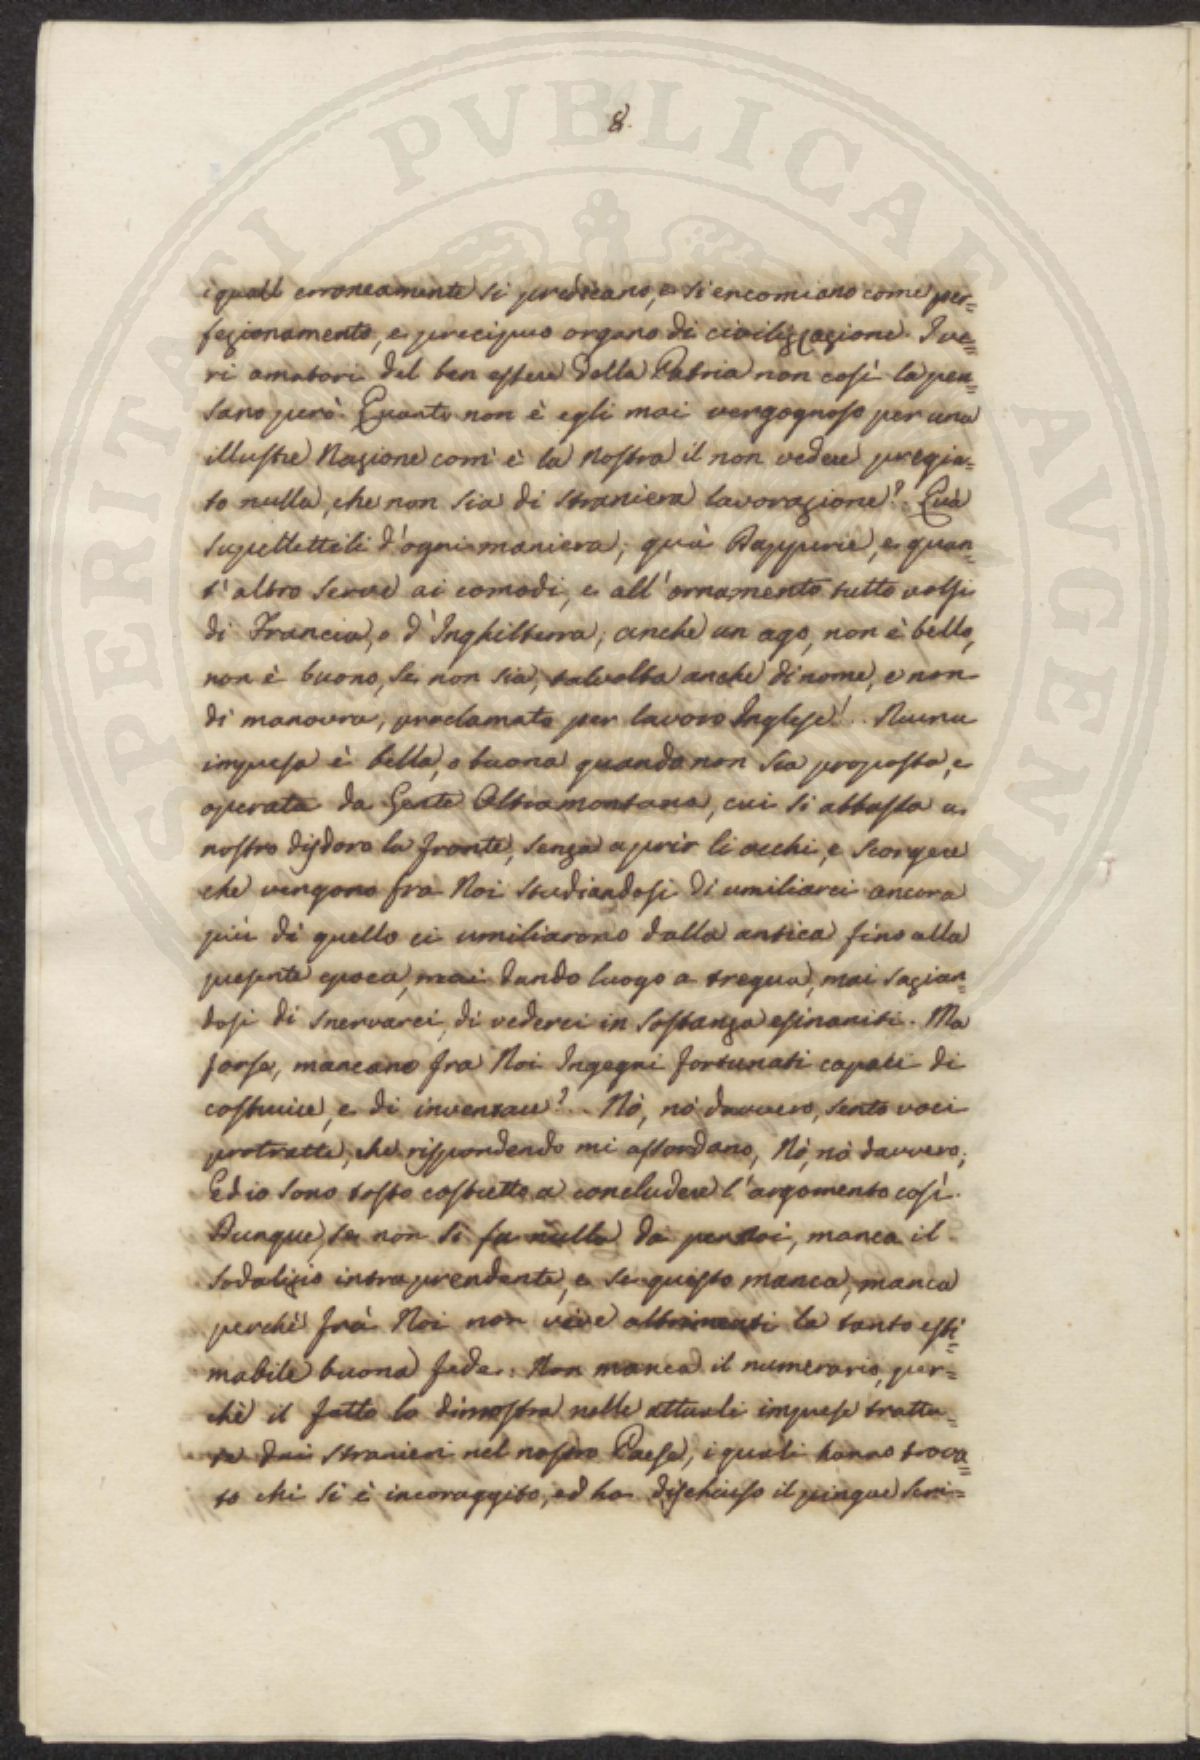 8.
i quali erroneamente si predicano, e si encomiano come per=
fezionamento, e precipuo organo di civilizzazione. I ve=
ri amatori del ben essere della Patria non così la pen=
sano però. Quanto non è egli mai vergognoso per una
illustre Nazione com'è la Nostra il non vedere pregia=
to nulla, che non sia di straniera lavorazione? Quà
Supellettili d'ogni maniera, quà Drapperie, e quan=
t'altro serve ai comodi, e all'ornamento tutto volsi
di Francia, o d'Inghilterra; anche un ago, non è bello,
non è buono, se non sia, talvolta anche di nome, e non
di manovra, proclamato per lavoro Inglese!.. Niuna
impresa è bella, o buona quando non sia proposta, e
operata da Gente Oltramontana, cui si abbassa a
nostro disdoro la fronte, senza aprir li occhi, e scorgere
che vengono fra Noi studiandosi di umiliarci ancora
più di quello ci umiliarono dalla antica fino alla
presente epoca, mai dando luogo a tregua, mai sazian=
dosi di snervarci, di vederci in sostanza esinaniti. Ma
forse, mancano fra Noi Ingegni fortunati capaci di
costruire, e di inventare?.. Nò, nò davvero, sento voci
protratte, che rispondendo mi assordano, Nò, nò davvero;
Ed io sono tosto costretto a concludere l'argomento così.
Dunque, se non si fa nulla da per Noi, manca il
Sodalizio intraprendente, e se questo manca, manca
perchè frà Noi non vive altrimenti la tanto esti=
mabile buona fede. Non manca il numerario, per=
chè il fatto lo dimostra nelle attuali imprese tratta=
te dai stranieri nel nostro Paese, i quali hanno trova=
to chi si è incoraggito, ed ha dischiuso il pingue scri=
SPERITATI PVBLICAE AVGEND